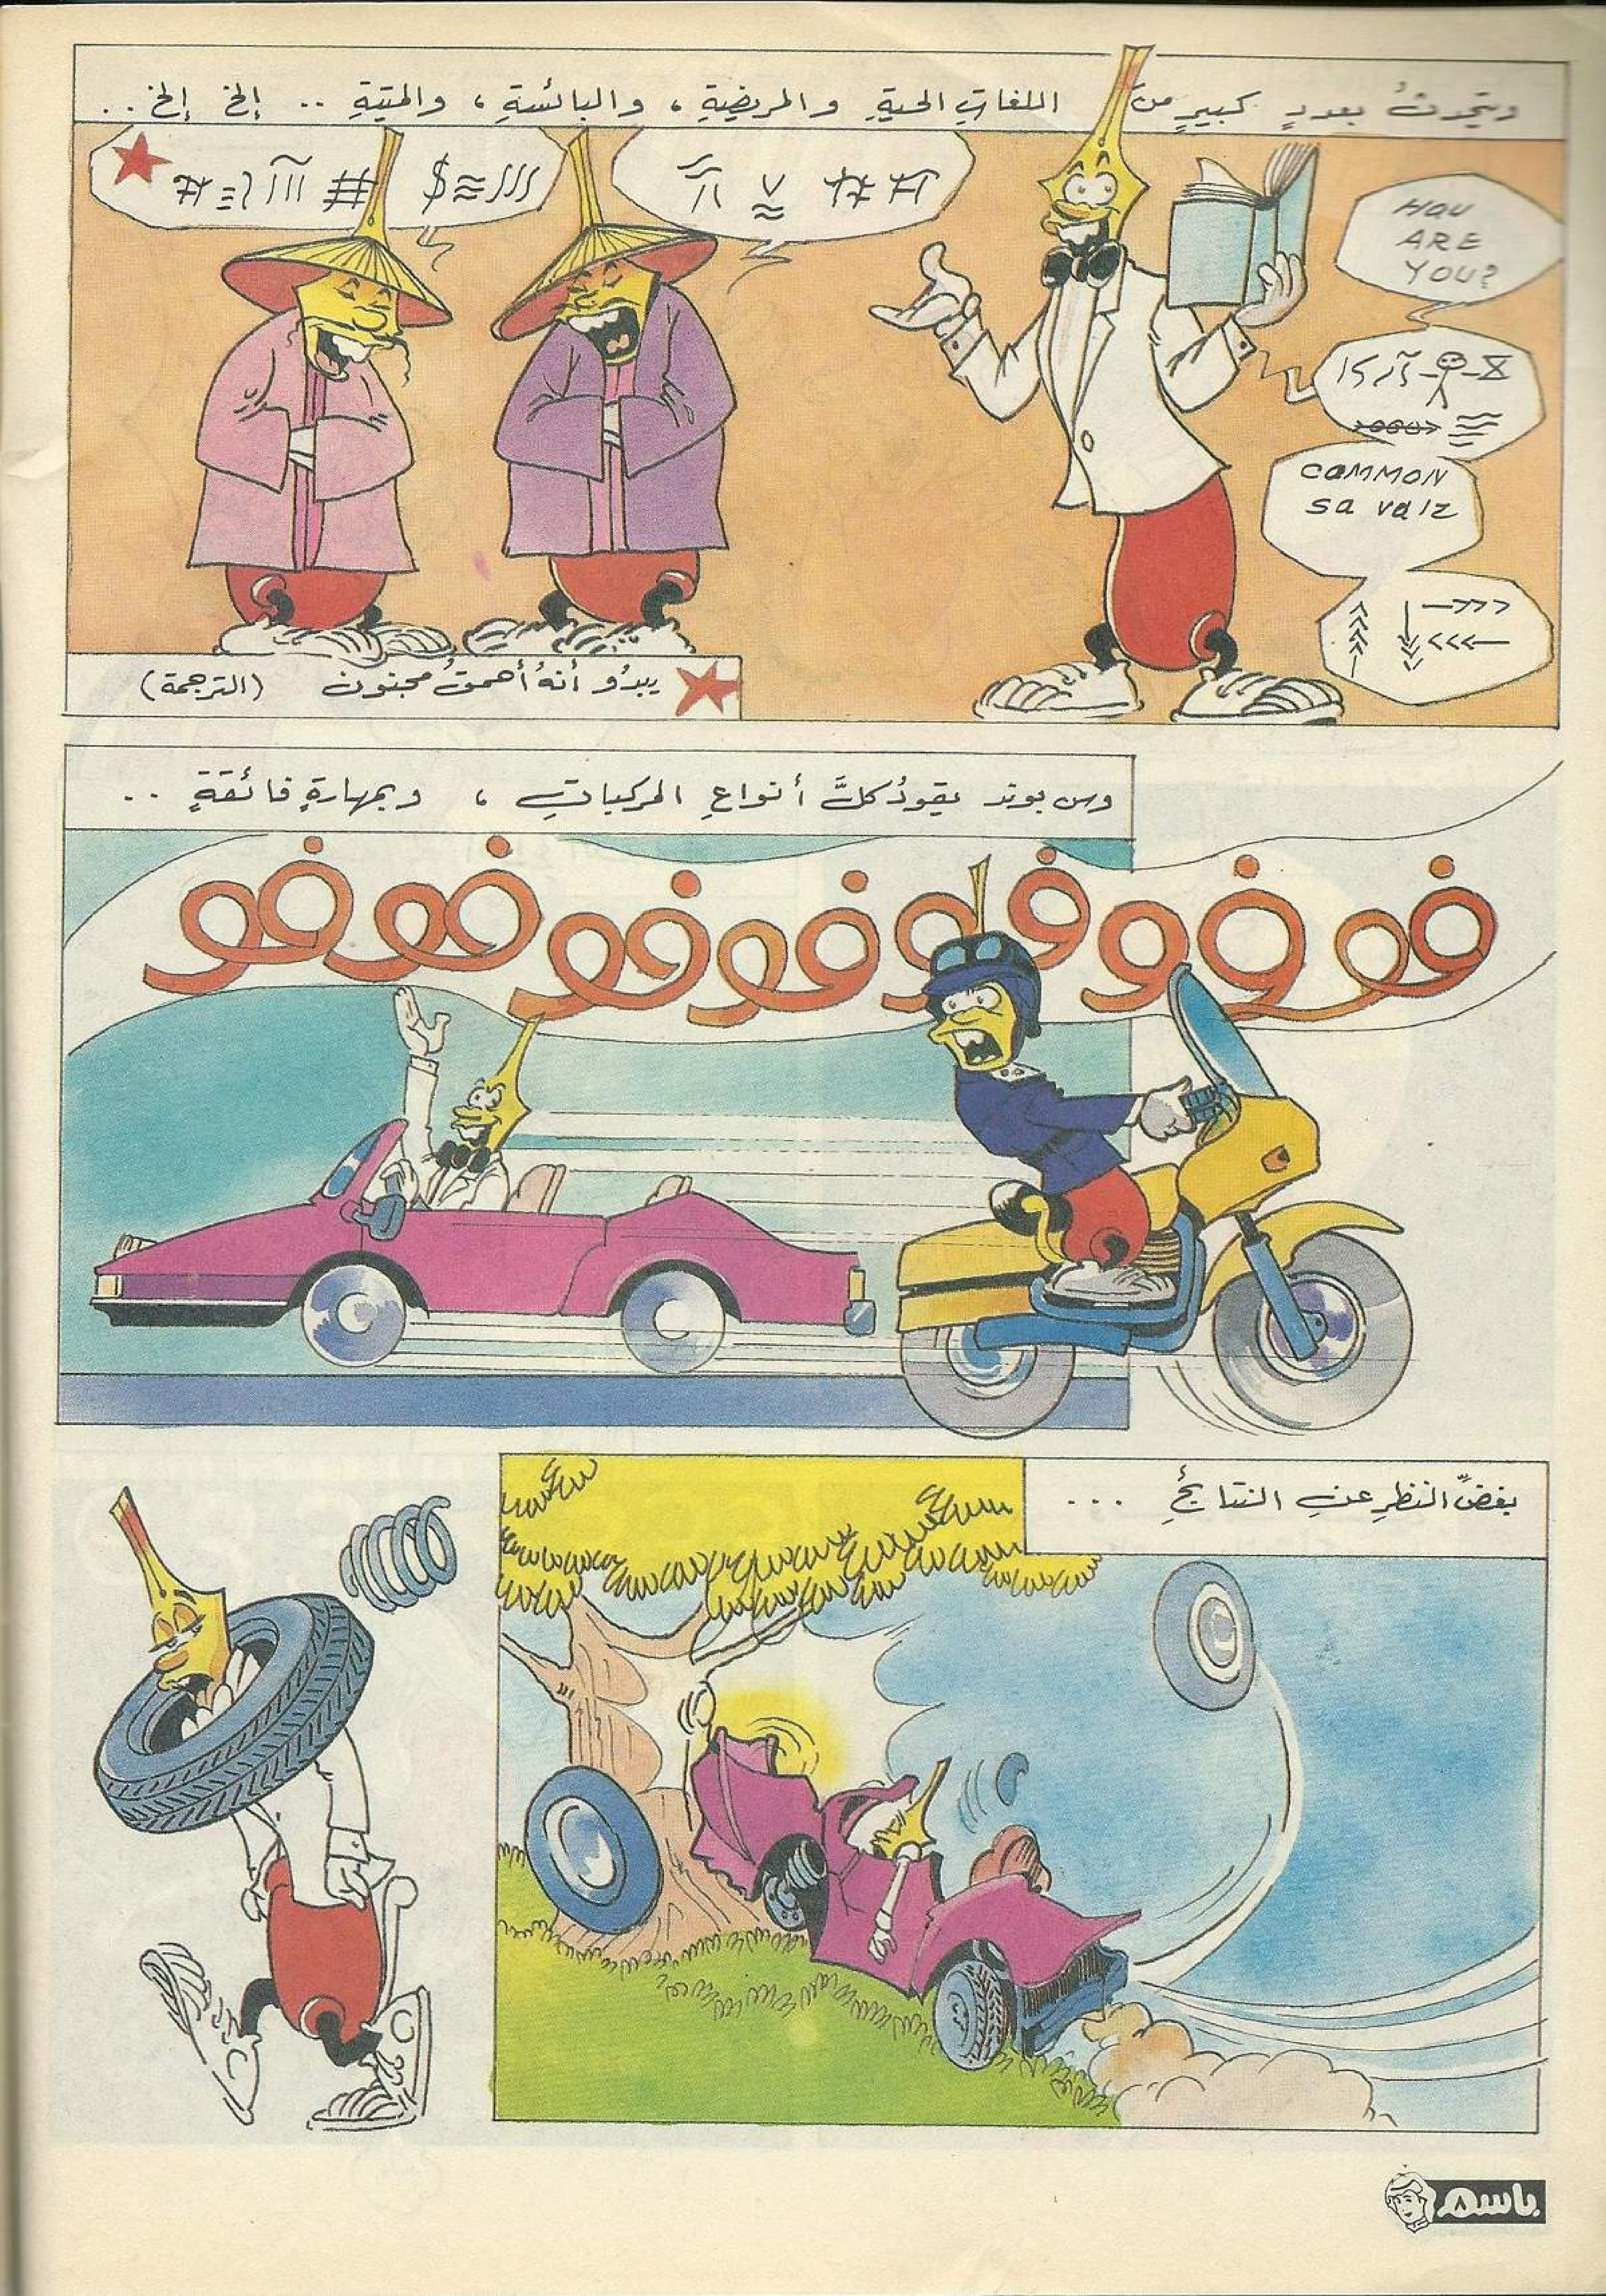 ويتحدثُ بعددٍ كبيرٍ من اللغاتِ الحيةِ والمريضيةِ ، والبائسةِ ، والميتةِ .. إلخ إلخ ..
HOW
ARE
YOU?
COMMON
sa vaiz
يبدُو أنهُ أحمقُ مجنون (الترجمة)
وس بوند يقودُ كلَّ أنواعِ المركباتِ ، وبمهارةٍ فائقةٍ ..
فو فوفو فوفوفوفوفوفو
بغضِّ النظرِ عنِ النتائجِ ...
باسم
٨